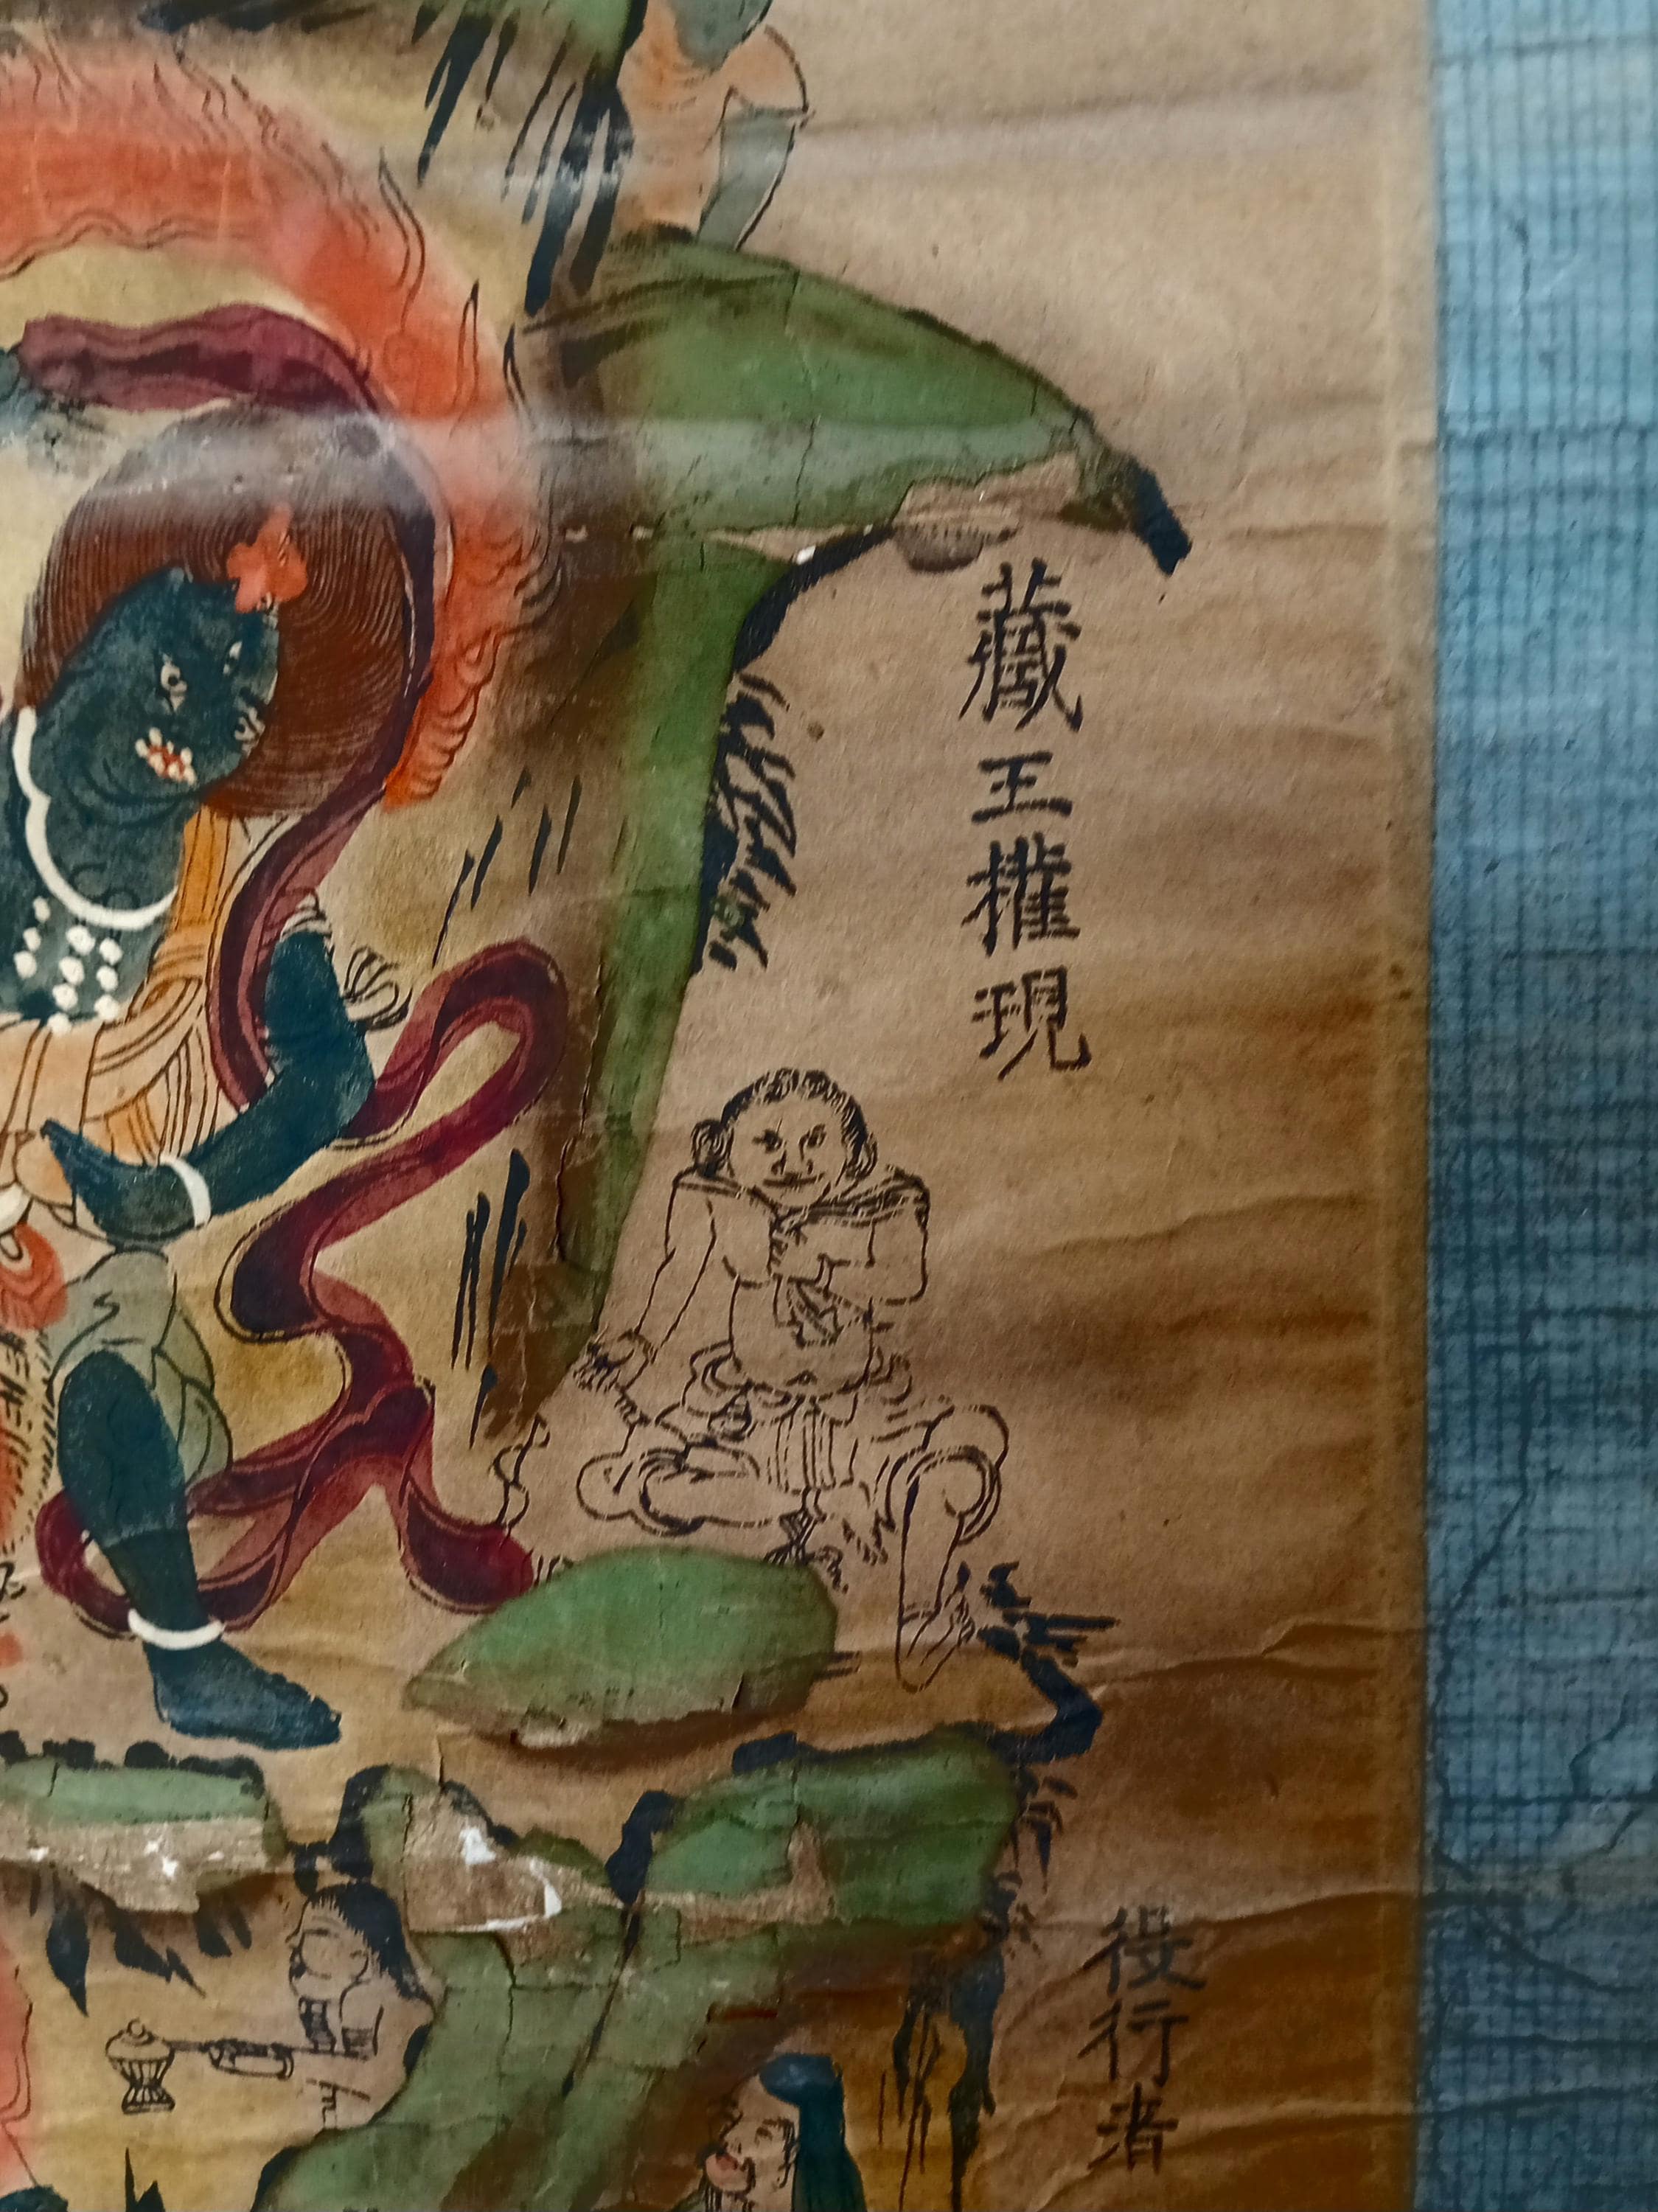 藏王權現
役行者